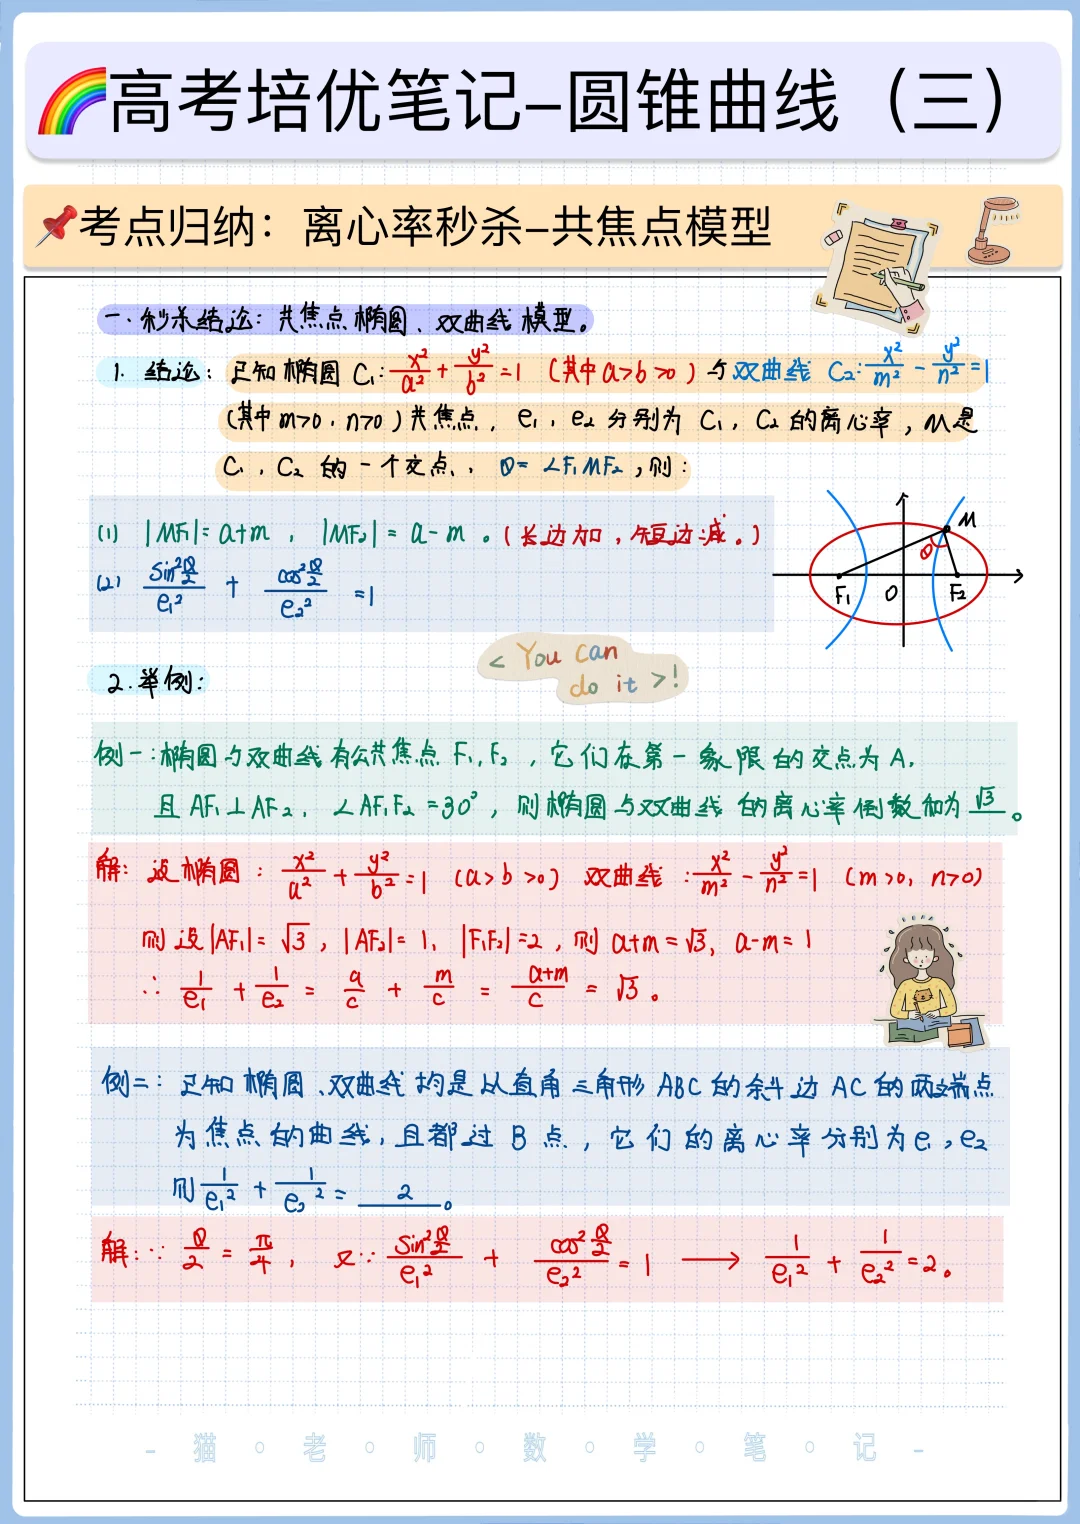 高考培优笔记–圆锥曲线（三）
考点归纳：离心率秒杀–共焦点模型
一.秒杀结论：共焦点椭圆、双曲线模型。
1. 结论：已知椭圆 C₁: x²/a² + y²/b² = 1 （其中a>b>0）与双曲线 C₂: x²/m² - y²/n² = 1
（其中m>0, n>0）共焦点，e₁, e₂分别为 C₁, C₂的离心率，M是
C₁, C₂ 的一个交点，θ= ∠F₁MF₂，则：
(1) |MF₁|= a+m , |MF₂| = a-m 。（长边加，短边减。）
(2) sin²θ/2/e₁² + cos²θ/2/e₂² = 1
M
θ
F₁ O F₂
< You can
do it >!
2.举例：
例一：椭圆与双曲线有公共焦点 F₁, F₂，它们在第一象限的交点为A,
且 AF₁⊥AF₂, ∠AF₁F₂=30°，则椭圆与双曲线的离心率倒数和为 √3 。
解：设椭圆： x²/a² + y²/b² = 1 (a>b>0) 双曲线：x²/m² - y²/n² = 1 (m>0, n>0)
则设|AF₁|= √3, |AF₂|= 1, |F₁F₂|=2, 则 a+m=√3, a-m=1
∴ 1/e₁ + 1/e₂ = a/c + m/c = a+m/c = √3 。
例二：已知椭圆、双曲线均是以直角三角形ABC的斜边AC的两端点
为焦点的曲线，且都过B点，它们的离心率分别为e₁, e₂
则 1/e₁² + 1/e₂² = 2 。
解：∵ θ/2 = π/4, 又∵ sin²θ/2/e₁² + cos²θ/2/e₂² = 1 ⟶ 1/e₁² + 1/e₂² = 2 。
- 猫 · 老 · 师 · 数 · 学 · 笔 · 记 -